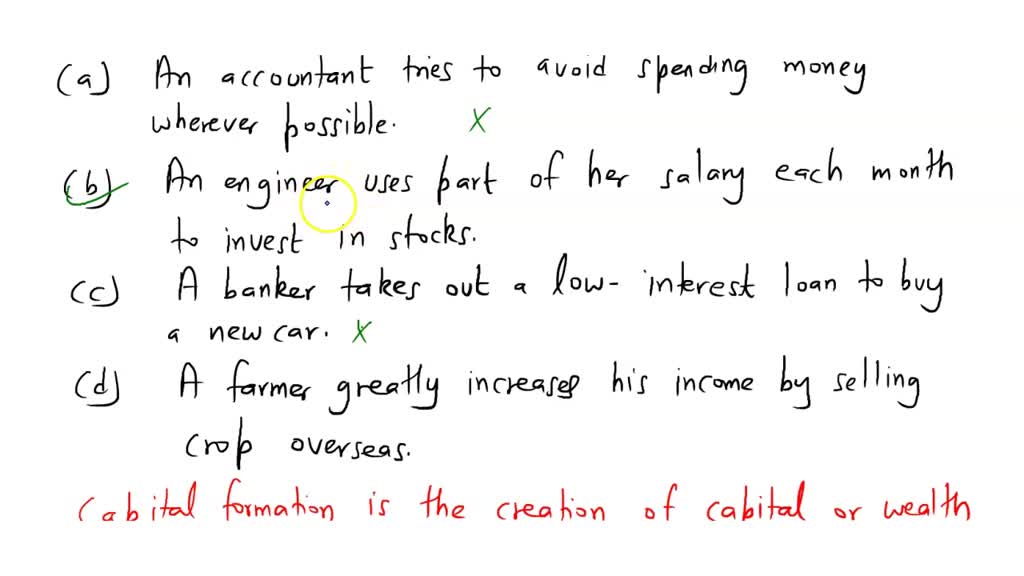 (a) An accountant tries to avoid spending money
wherever possible. X
(b) An engineer uses part of her salary each month
to invest in stocks.
(c) A banker takes out a low- interest loan to buy
a new car. X
(d) A farmer greatly increases his income by selling
crop overseas.
Cabital formation is the creation of cabital or wealth